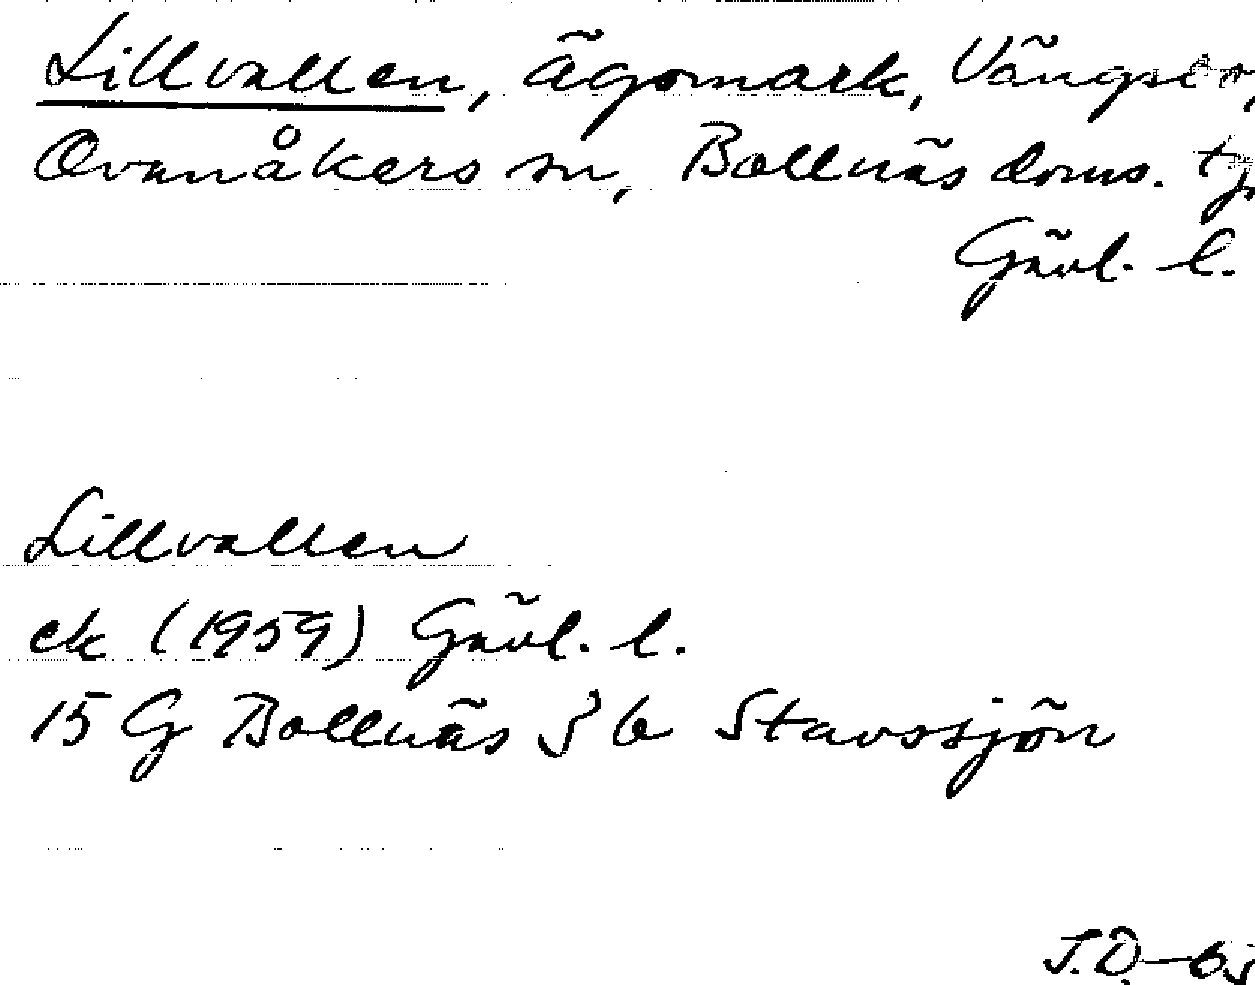 Lillvallen, ägomark, Vängsbo,
Ovanåkers sn, Bollnäs doms. tj,
Gävl. l.
Lillvallen
ek (1959) Gävl. l.
15 G Bollnäs 3 b Stavssjön
J.D.-65